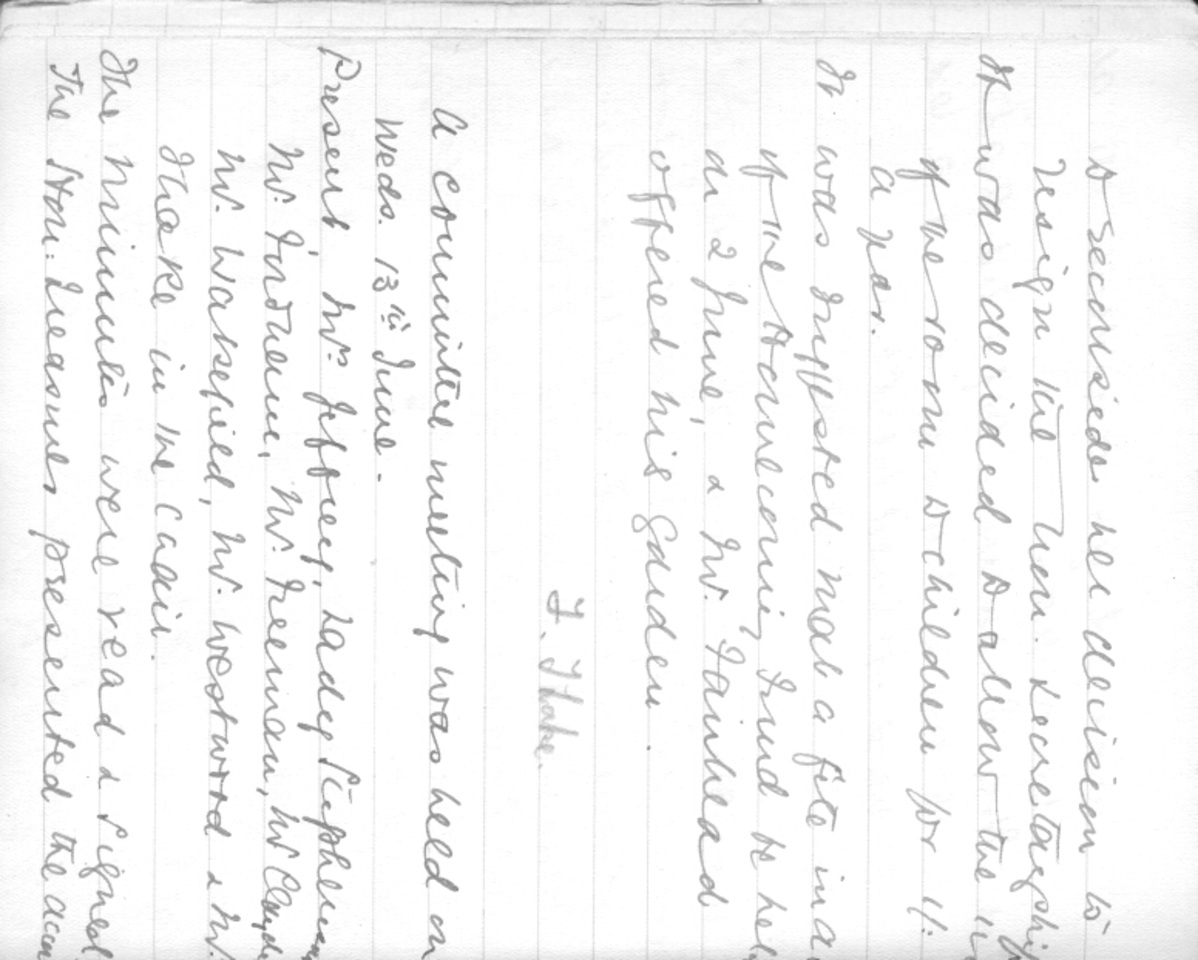 to reconsider her decision to
resign the Hon. Secretaryship
It was decided to allow the
of the room to children for
a year.
It was suggested that a fête in a
of the Homecoming Fund be held
on 2 June, & Mr. Fairhead
offered his garden.
F. Thake.
A committee meeting was held on
Weds. 13th June.
Present Mr. Jeffrey, Lady Stephenson
Mr. Freeman, Mr
Mr. Wakefield, Mr. Westwood & Mr.
Thake in the chair.
The minutes were read & signed
The Hon. Treasurer presented the